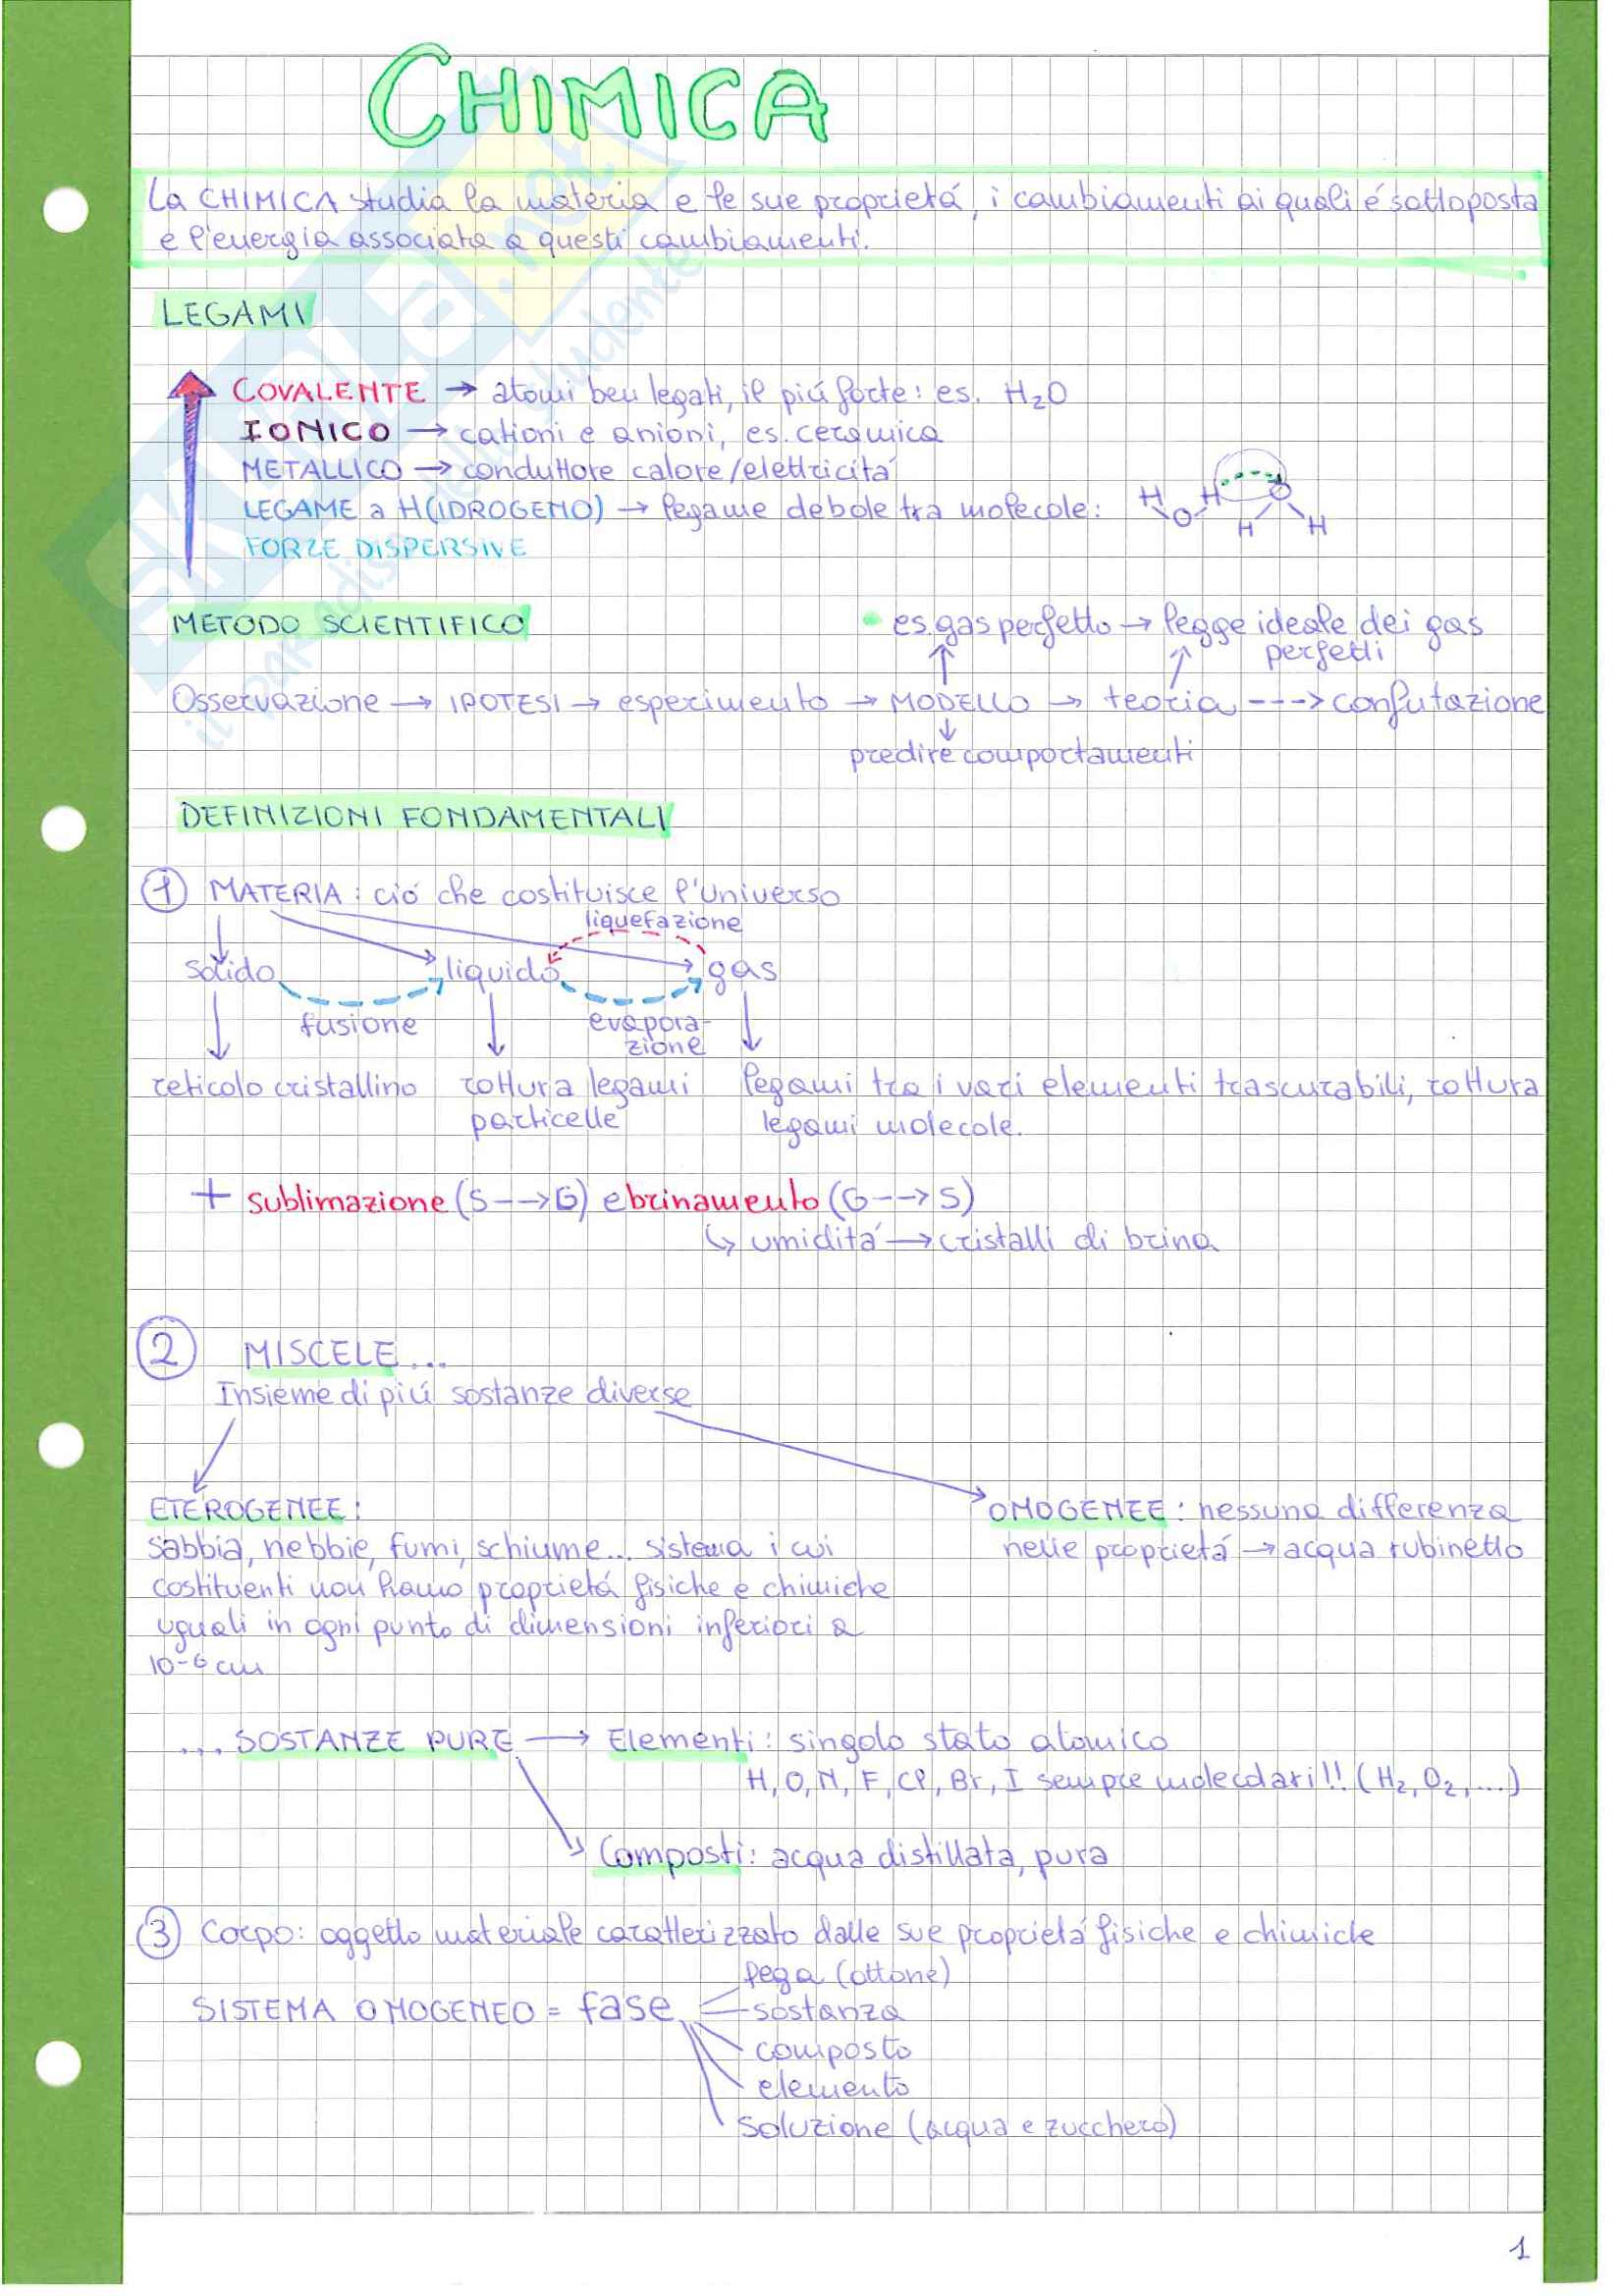 CHIMICA
La CHIMICA studia la materia e le sue proprietá, i cambiamenti ai quali é sottoposta
e l'energia associata a questi cambiamenti.
LEGAMI
COVALENTE → atomi ben legati, il piú forte: es. H₂O
IONICO → cationi e anioni, es. ceramica
METALLICO → conduttore calore/elettricitá
LEGAME a H(IDROGENO) → legame debole tra molecole:
H O H O H H
FORZE DISPERSIVE
METODO SCIENTIFICO
es. gas perfetto → legge ideale dei gas
perfetti
Osservazione → IPOTESI → esperimento → MODELLO → teoria ---> confutazione
predire comportamenti
DEFINIZIONI FONDAMENTALI
1 MATERIA: ció che costituisce l'universo
liquefazione
solido liquido gas
fusione evapora-
zione
reticolo cristallino rottura legami legami tra i vari elementi trascurabili, rottura
particelle legami molecole.
+ sublimazione (S-->G) e brinamento (G-->S)
↳ umiditá → cristalli di brina
2 MISCELE...
Insieme di piú sostanze diverse
ETEROGENEE: OMOGENEE: nessuna differenza
sabbia, nebbie, fumi, schiume... sistema i cui nelle proprietá → acqua rubinetto
costituenti non hanno proprietá fisiche e chimiche
uguali in ogni punto di dimensioni inferiori a
10-6 cm
... SOSTANZE PURE → Elementi: singolo stato atomico
H, O, N, F, Cl, Br, I sempre molecolari!! (H₂, O₂, ...)
Composti: acqua distillata, pura
3 Corpo: oggetto materiale caratterizzato dalle sue proprietá fisiche e chimiche
lega (ottone)
SISTEMA OMOGENEO = fase sostanza
composto
elemento
soluzione (acqua e zucchero)
1
skuola.net
il paradiso dello studente